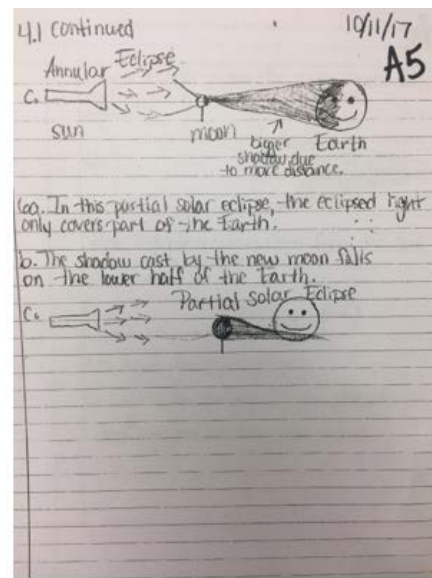 4.1 continued
10/11/17
A5
Annular Eclipse
C.
sun
moon
Earth
biger
shadow due
to more distance.
6a. In this partial solar eclipse, the eclipsed light
only covers part of the Earth.
b. The shadow cast by the new moon falls
on the lower half of the Earth.
Partial solar Eclipse
C.